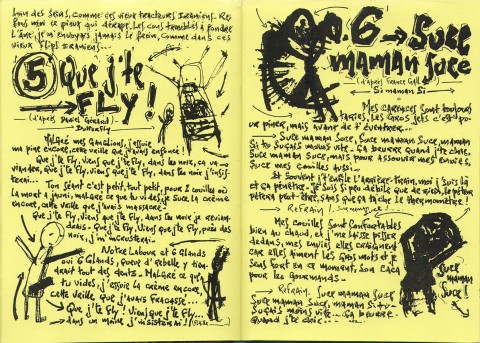 loin des seins, comme ces vieux tracteurs Iraniens. Re-
l'Ane, je n'envoyais jamais le frein, comme dans ces
vieux Flips Iraniens...
5 Que j'te
→ FLY!
(d'après Daniel Gérard)
Butterfly
Malgré mes Ganglions, j'essuie
ma pine encore, cette vieille que j'avais enfoncé!
Que j'te Fly, viens que j'te Fly, dans les noix, ça va ce
viander, que j'te Fly, viens que j'te Fly, dans les noix j'insis-
terai...
Ton séant c'est petit, tout petit, pour 2 couilles où
la mort a jauni, malgré ce que tu vides je suce la crème
encore, cette vieille que j'avais massacré!
Que j'te Fly, viens que j'te Fly, dans les noix je revien-
drais - Que j'te Fly, viens que j'te Fly, près des
noix, j'm'incrusterai..
Notre Labour et 6 Glands
ou 6 Glands, queue d'rebelle y tien-
drait tout des dents.. Malgré ce que
tu vides, j'essuie la crème encore
cette vieille que j'avais Fracassé...
→ Que j'te Fly! Viens que j'te Fly...
→ dans un moine j'm'insisterai!
n.6 → Suce
maman
Suce
(d'après France Gall)
← Si maman Si →
Mes carences sont toujours
taries, les gros jets c'est po-
ur piner, mais avant de t'éventrer...
→ Suce maman suce, Suce maman suce, maman
Si tu suçais moins vite.. ça beurre quand j'te choie,
Suce maman suce, mais pour assouvir mes envies,
Suce mes couilles aussi..
Et souvent j'enfile l'arrière-train, moi j'suis là
et ça pénètre.
← Refrain!
Mes couilles sont confortables
bien au chaud, et j'me laisse pisser
dedans, mes envies elles craignent
car elles aiment les gros mots et je
sens fort en ce moment, son caca
pour les gourmands -
- Refrain. Suce maman Suce
Suce maman suce, maman si tu
suçais moins vite... ça beurre
quand j'te choie... →
Suce
maman
Suce!